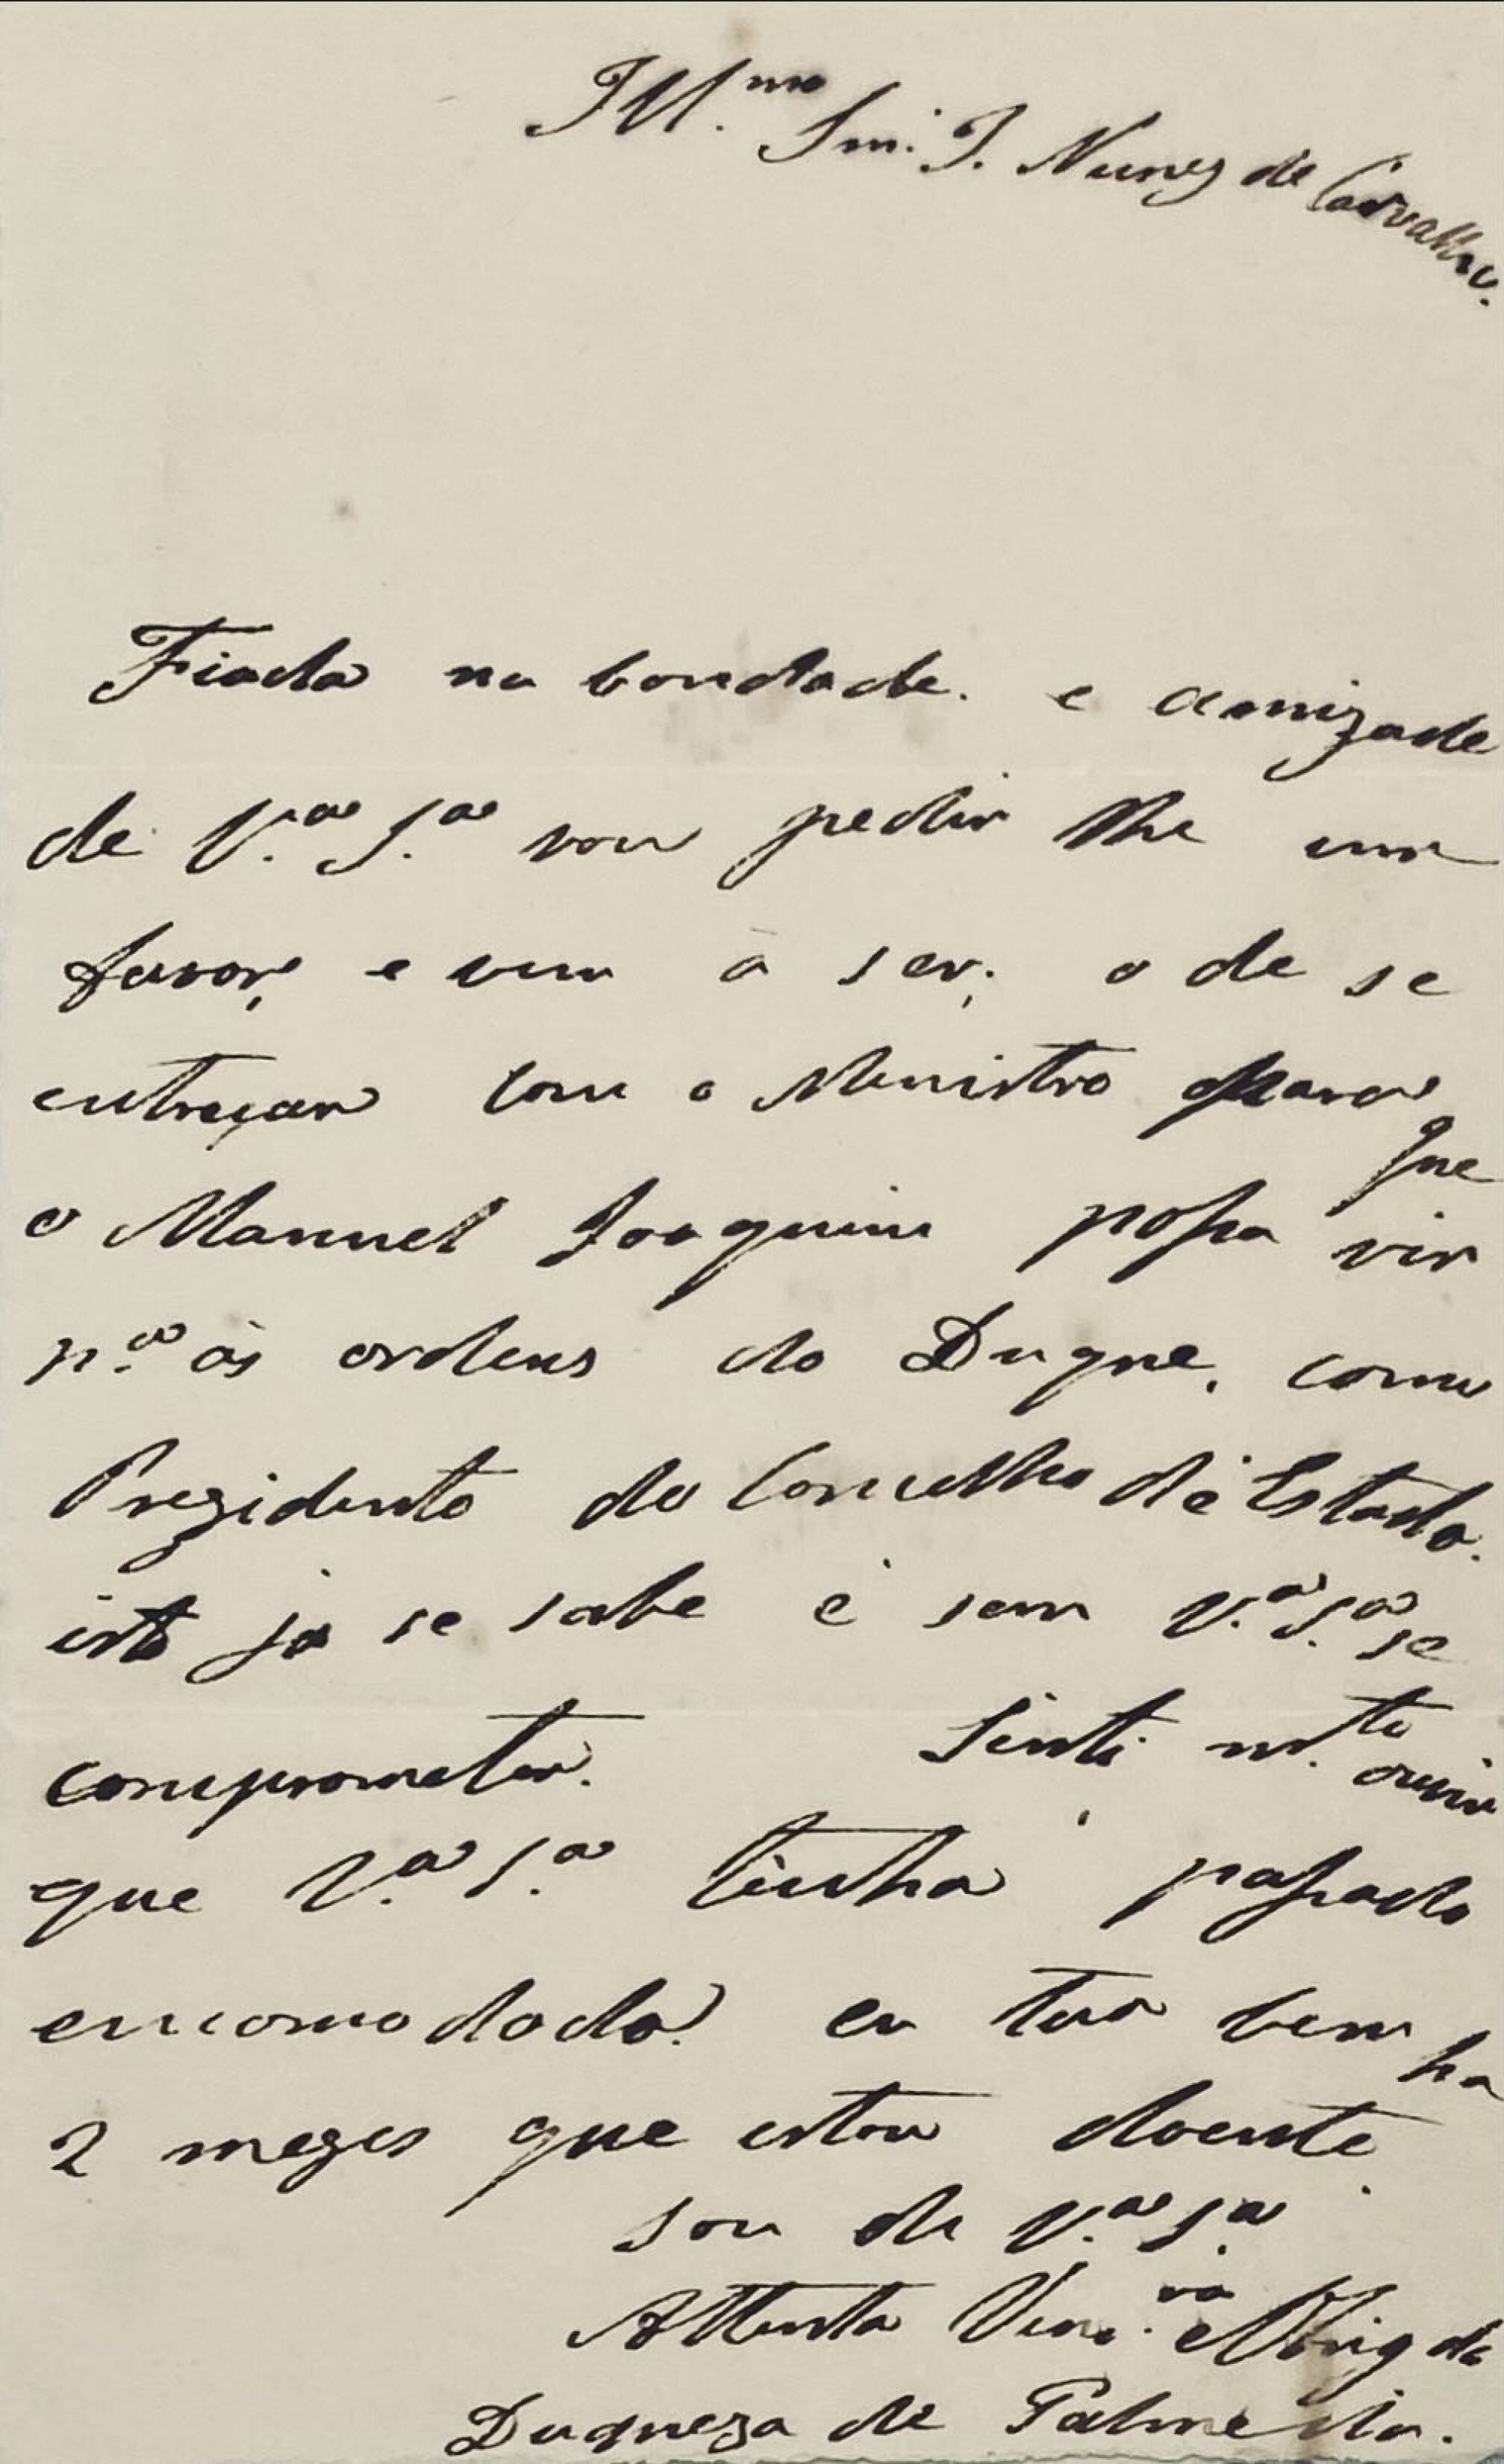 Ill.mo Snr. J. Nunes de Carvalho.
Fiada na bondade. e amizade
de V.a S.a vou pedir lhe um
favor, e vem a ser; o de se
entreçar com o Menistro para que
o Manuel Joaquim possa vir
p.a às ordens do Duque, como
Prezidente do Concelho de Estado.
isto já se sabe é sem V.a S.a se
comprometer. Senti m.to ouvir
que V.a S.a tinha passado
encomodado. eu tão bem ha
2 mezes que estou doente.
Sou de V.a S.a
Attenta Ven.ra e Obrigda
Duqueza de Palmella.